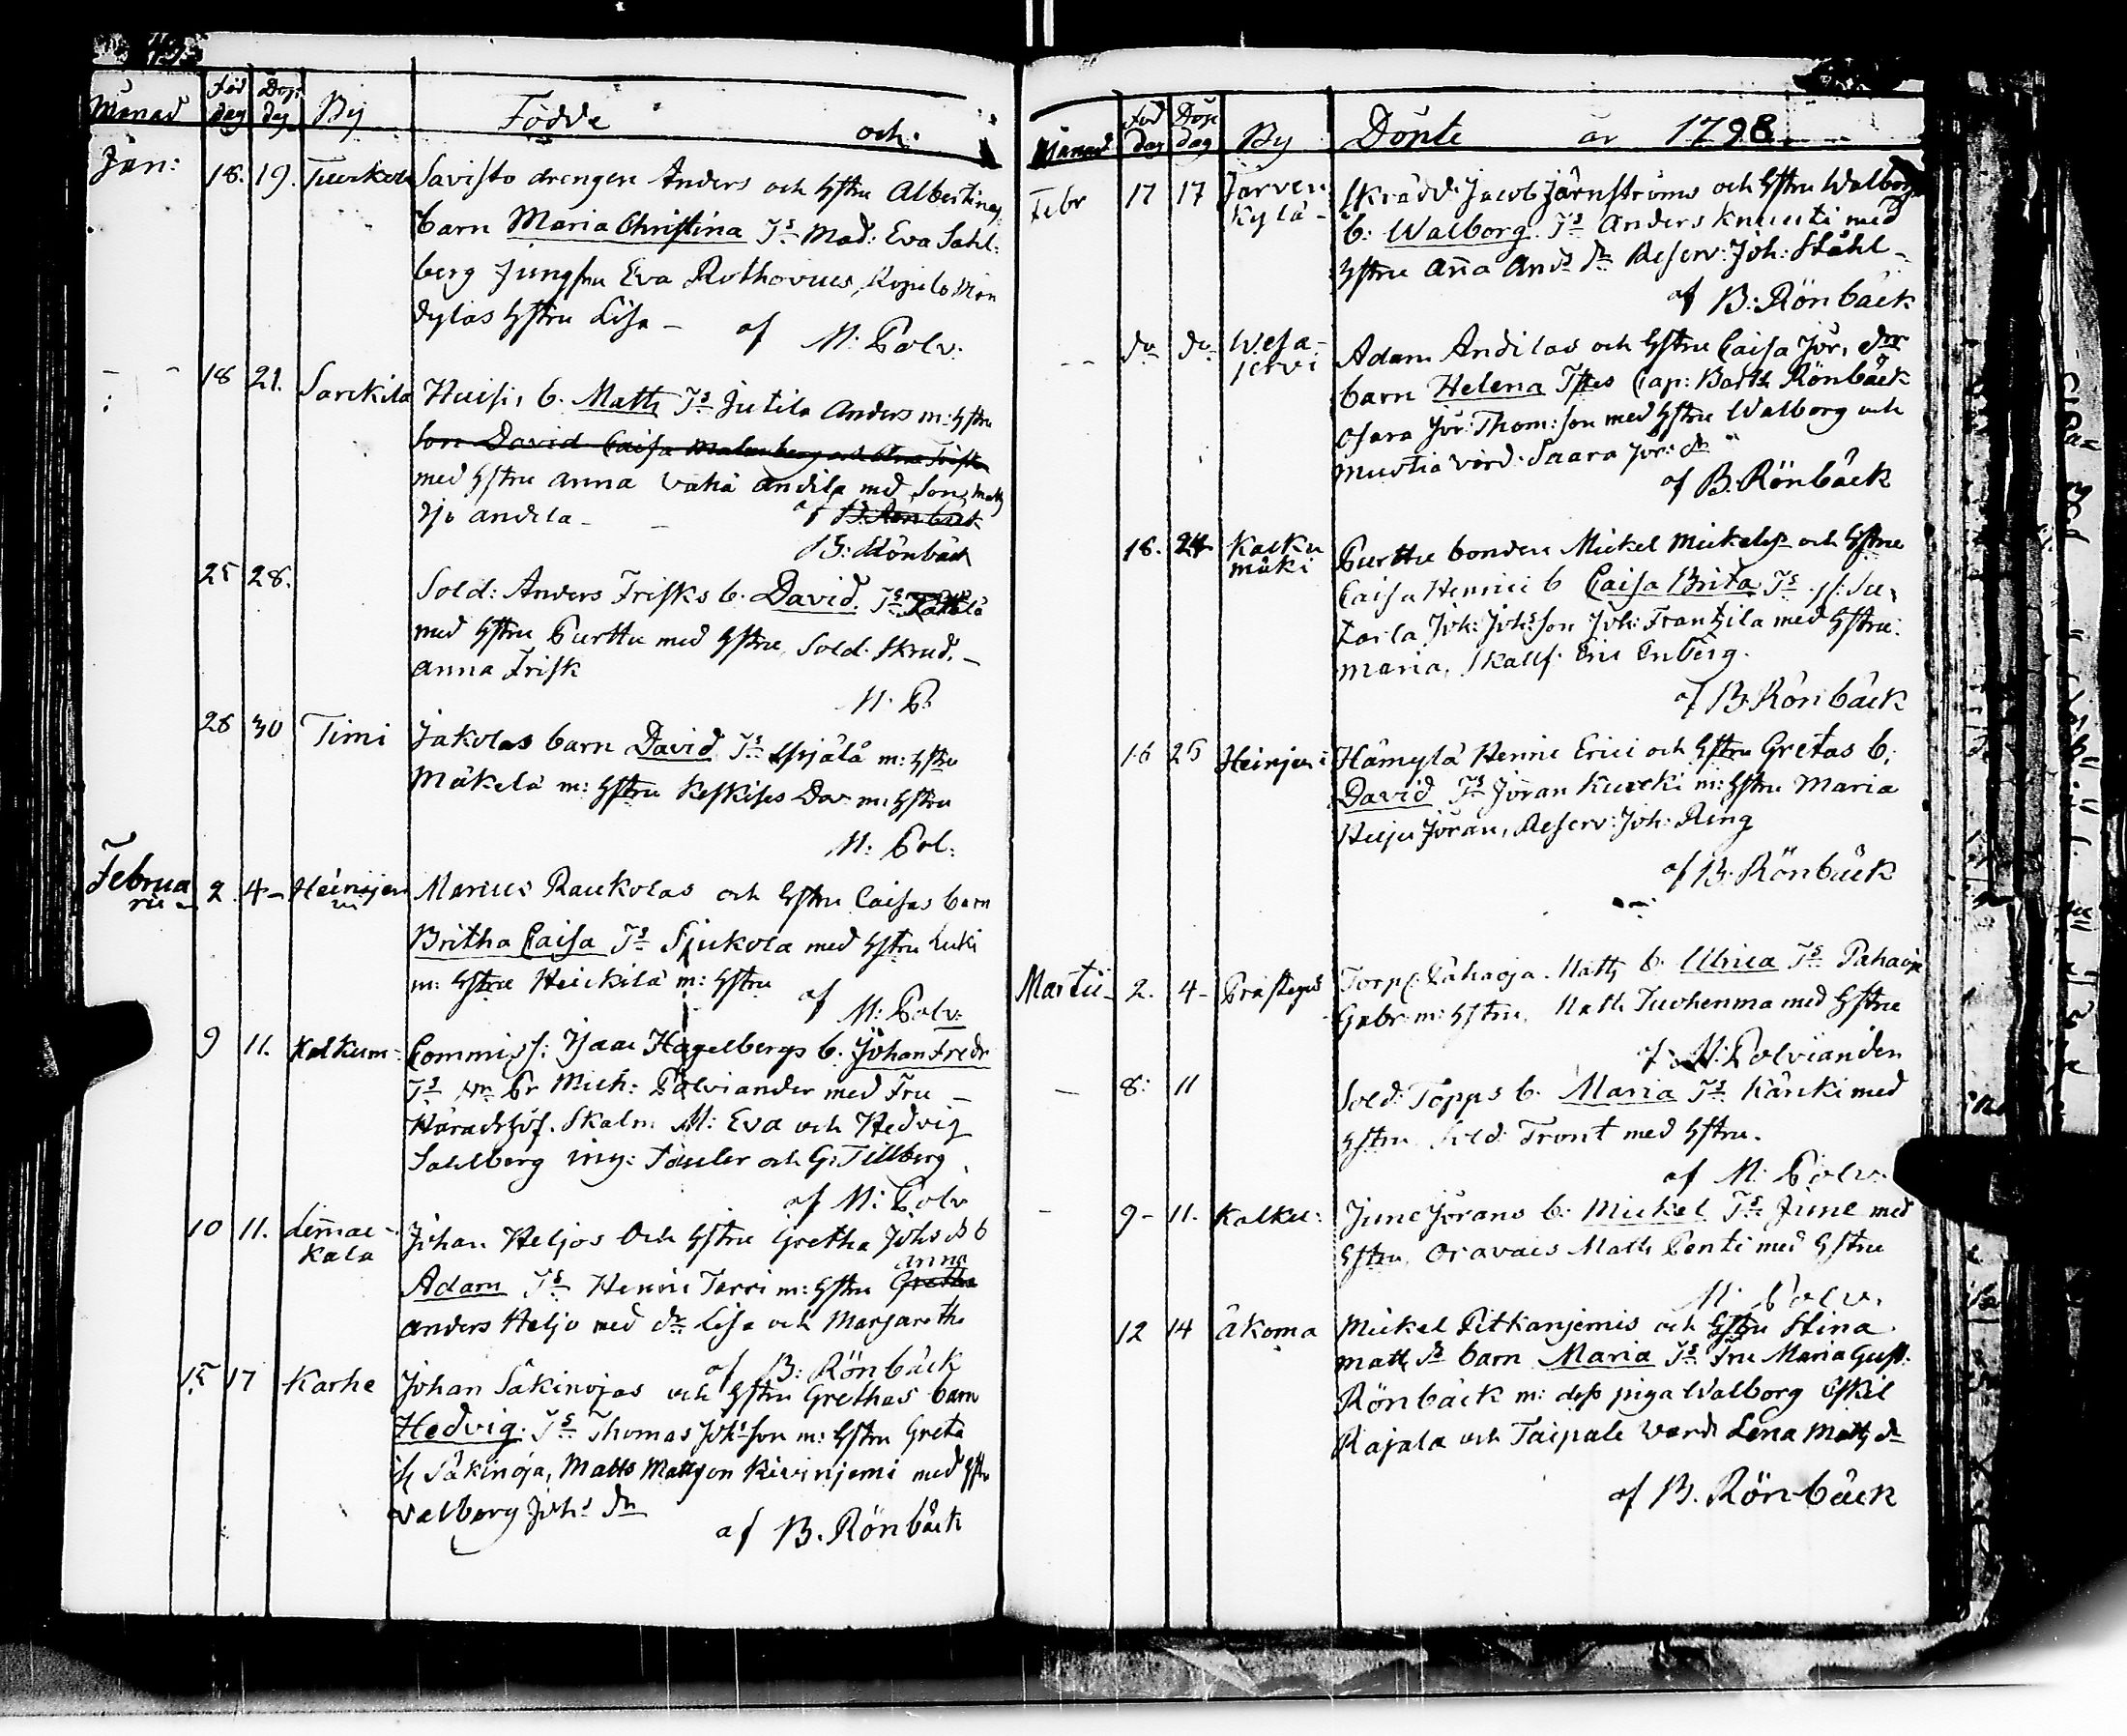 Månad Föd dag Döp dag By Födde och
Jan: 18. 19. Savisto drengen Anders och Hstru Albertinas
barn Maria Christina Ts Mad: Eva Sahl:
berg Jungfru Eva Rothovius,
Hstru Lisa – af M: Polv:
– – 18 21. Sarckila b. Matts Ts Jutila Anders m: Hstru
son David Caisa
med Hstru Anna Vähä Andila med son Matts
Andila – – af B. Rönbäck
B: Rönbäck
25 28. Sold: Anders Frisks b. David Ts
med Hstru Purttu med Hstru, Sold. Skrud. –
Anna Frisk
M. P.
28 30 Timi Jakolas barn David Ts m: Hstru
Mäkelä m: Hstru Keskises Dav: m: Hstru
M: Pol:
Februa
rii – 2 4 – Heinojen Marcus Raukolas och Hstru Caisas barn
Britha Caisa Ts Sjukola med Hstru
m: Hstru Heickilä m: Hstru
af M: Polv:
9 11. Kalkum: Commiss: Isaac Hagelbergs b. Johan Fredr
Ts Pr Mich: Polviander med Fru –
Häradshöf. Skalm M: Eva och Hedvig
Sahlberg och G: Tillberg
af M: Polv
10 11. Limae-
kala Johan Heljos Och Hstru Gretha Johs d. b
Anna
Adam Ts Henric Terri m: Hstru Gretha
Anders Heljo med dr Lisa och Margaretha
af B: Rönbäck
15 17 Karhe Johan Säkinojas och Hstru Grethas barn
Hedvig. Ts Thomas Johsson m: Hstru Greta
Säkinoja, Matts Mattsson Kivinjemi med Hstru
Valborg Johs dr
af B. Rönbäck
Månad Föd dag Döp dag By Döpte år 1798
Febr 17 17 Järven
kylä – Skrädd: Jacob Järnströms och Hstru Walborgs
b: Walborg Ts Anders Knuuti med
Hstru Anna Ands dr Reserv: Joh: Ståhl –
af B: Rönbäck
– – do do Wesa-
jervi Adam Andilas och Hstru Caisa Jör: dr
barn Helena Ttes Cap: Barth Rönbäck
Osara Jör: Thom: son med Hstru Walborg och
Mustia värd: Saara Jör: dr
af B. Rönbäck
18. 24 Kalku
mäki Purttu bonden Mickel Mickelss och Hstru
Caisa Henrici b Caisa Brita Ts
Joh: Johsson Joh: Frantzila med Hstru
Maria, Eric Enberg.
af B. Rönbäck
16 25 Heinjoni Hämylä Henric Erici och Hstru Gretas b.
David Ts Jöran Kurcki m: Hstru Maria
Jöran, Reserv: Joh: Ring
af B. Rönbäck
Martii – 2. 4 – Torp. Pahaoja Matts b. Ulrica Ts Pahaoja
Gabr m: Hstru, Matts Tuohenma med Hstru
af M: Polvianden
– 8: 11 Sold: Topps b. Maria Ts Kärcki med
Hstru Sold: Tront med Hstru.
af M: Polv:
– 9 – 11. Kalku: June Jörans b. Mickel Ts June med
Hstru, Oravais Matts Penti med Hstru
M: Polv.
12 14 Äkoma Mickel Pitkanjemis och Hstru Stina
Matts dr barn Maria Ts Fru Maria Gust.
Rönbäck m: dess piga Walborg Eskil
Rajala och Taipale Värd: Lena Matts dr
af B. Rönbäck